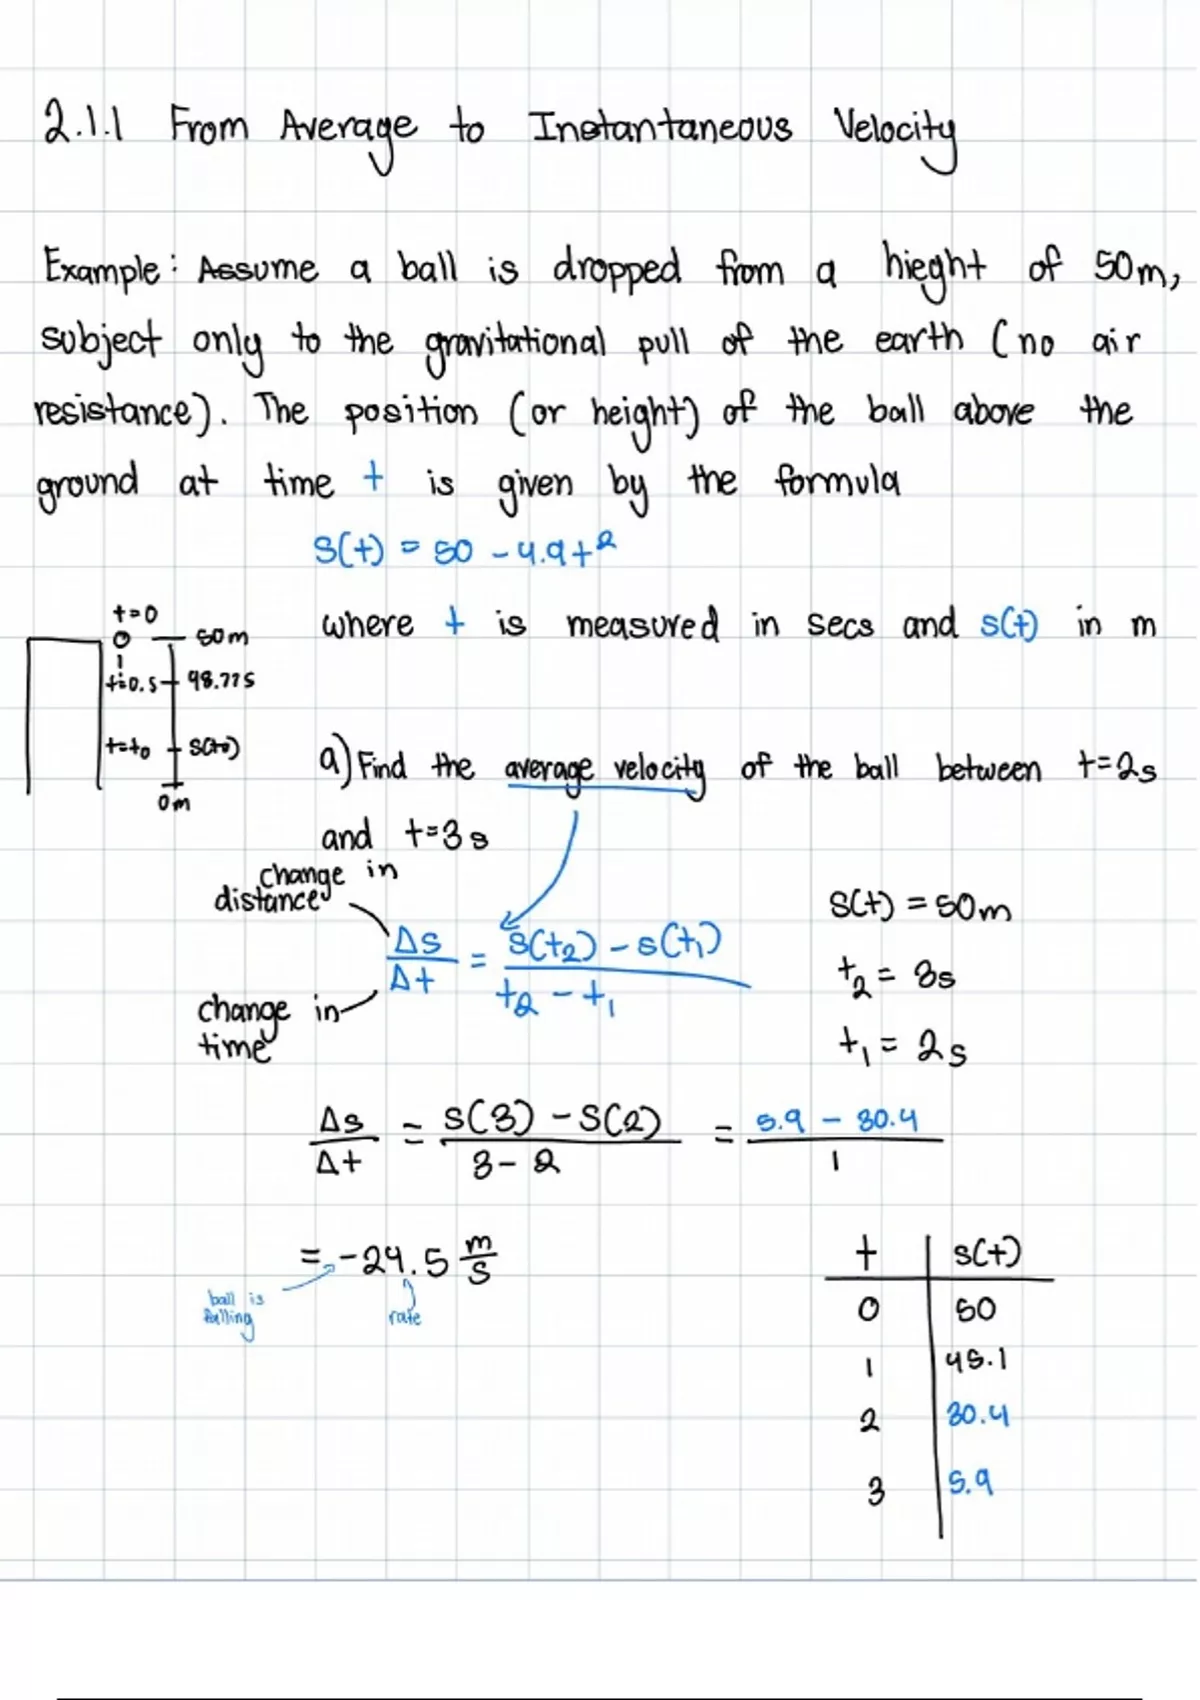 2.1.1 From Average to Instantaneous Velocity
Example: Assume a ball is dropped from a hieght of 50m,
subject only to the gravitational pull of the earth (no air
resistance). The position (or height) of the ball above the
ground at time t is given by the formula
s(t) = 50 - 4.9t²
where t is measured in secs and s(t) in m
t=0
50m
t=0.5
98.775
t=t₀
s(t₀)
0m
a) Find the average velocity of the ball between t=2s
and t=3s
change in
distance
Δs/Δt = (s(t₂) - s(t₁))/(t₂ - t₁)
change in
time
s(t) = 50m
t₂ = 3s
t₁ = 2s
Δs/Δt = (s(3) - s(2))/(3 - 2) = (5.9 - 30.4)/1
= -24.5 m/s
ball is
falling
rate
t | s(t)
0 | 50
1 | 45.1
2 | 30.4
3 | 5.9